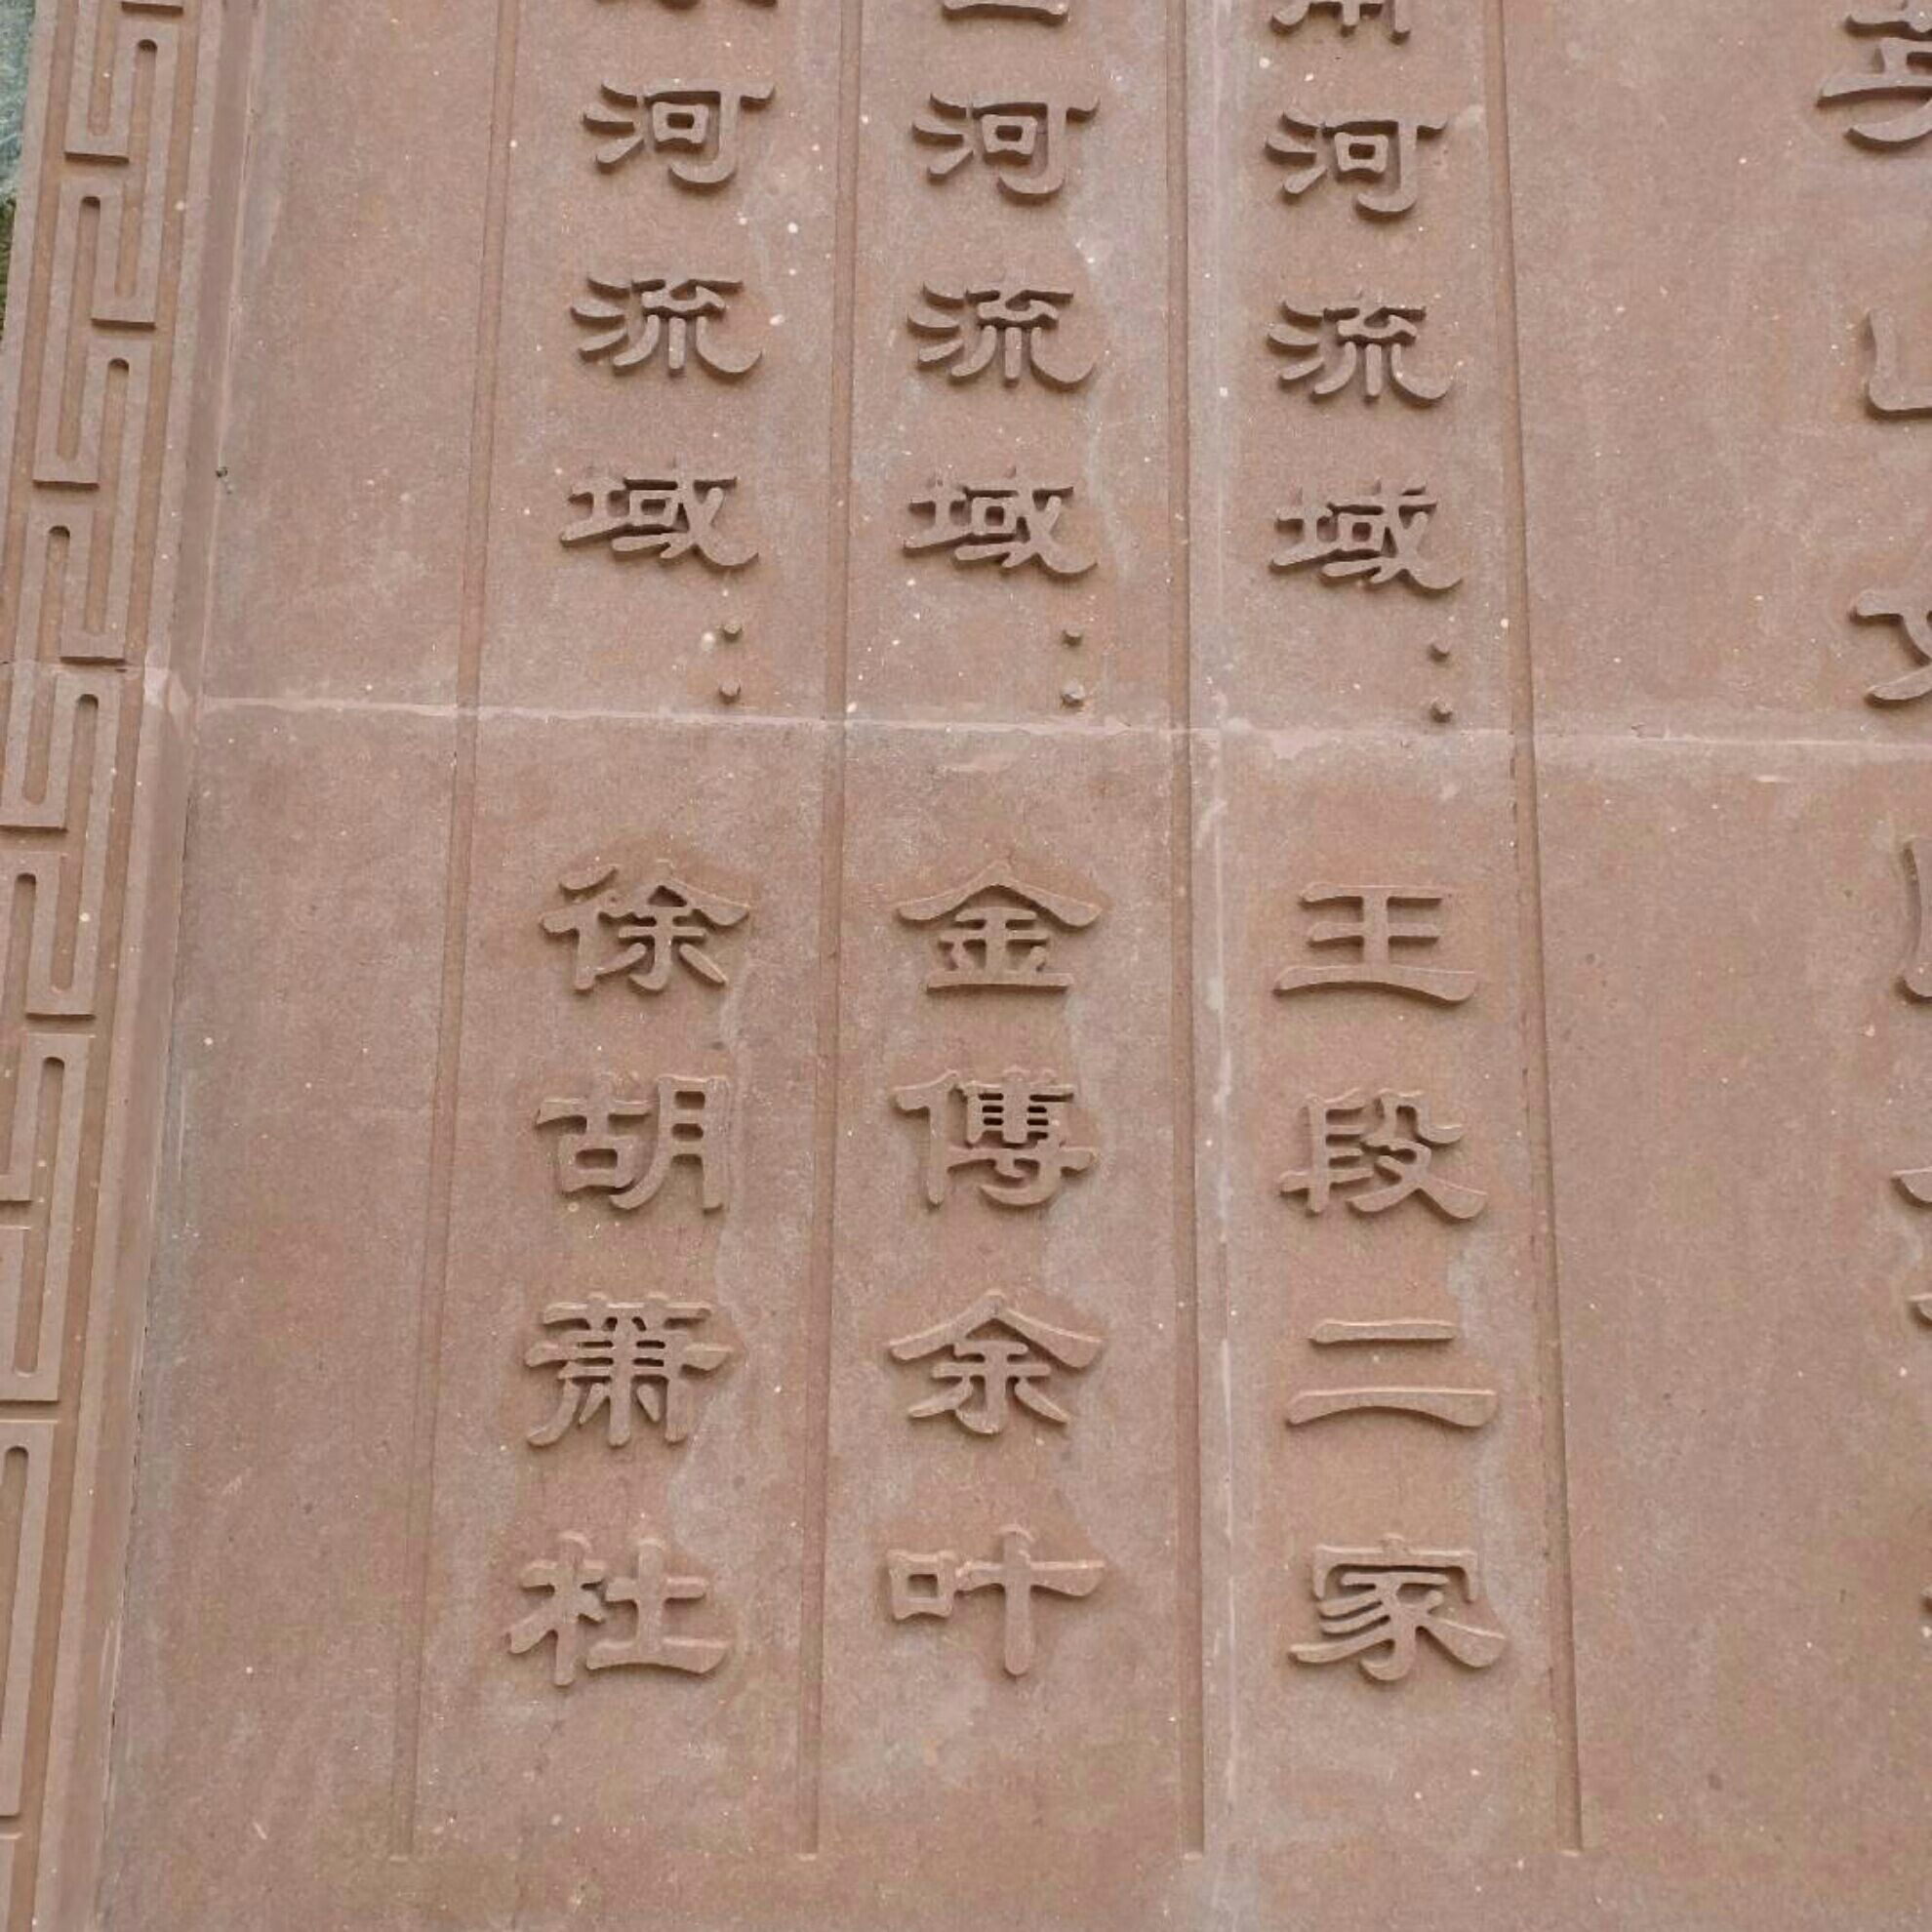 河流域：王段二家
河流域：金傅余叶
河流域：徐胡萧杜